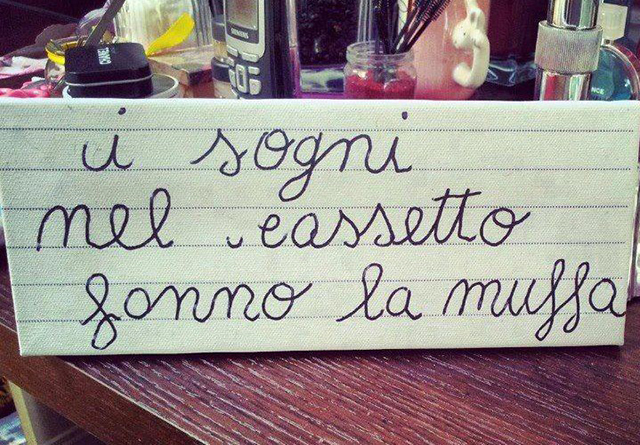 i sogni
nel cassetto
fanno la muffa
CHANEL
SIEMENS